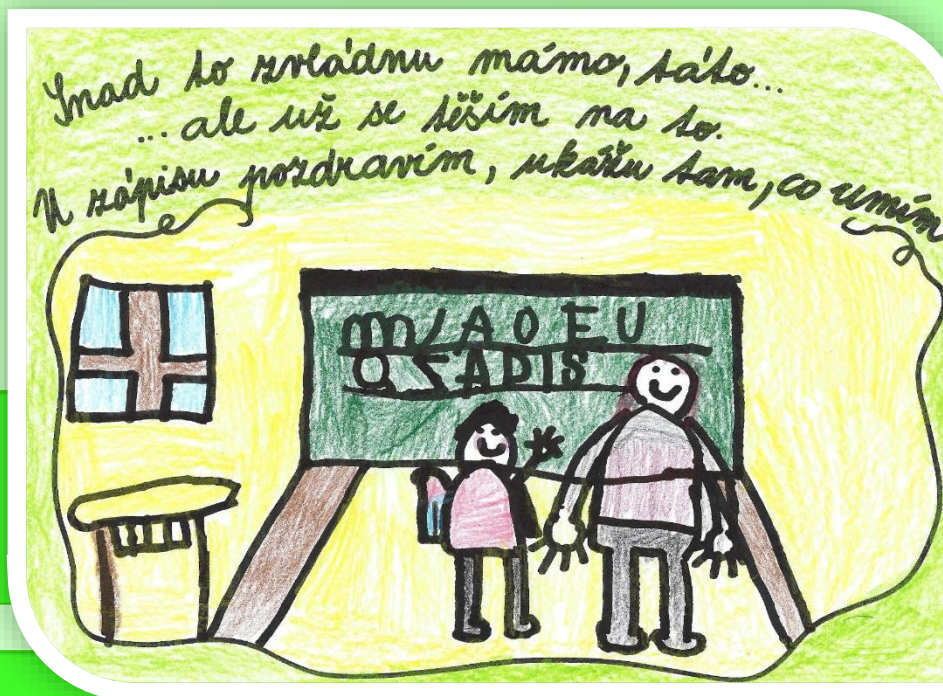 Snad to zvládnu mámo, táto...
... ale už se těším na to.
U zápisu pozdravím, ukážu tam, co umím
A O E U